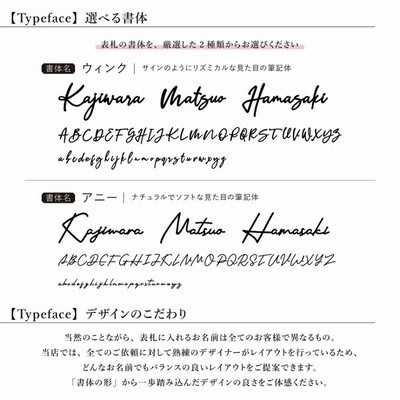 【Typeface】選べる書体
表札の書体を、厳選した2種類からお選びください
書体名 ウィンク | サインのようにリズミカルな見た目の筆記体
Kajiwara Matsuo Hamasaki
ABCDEFGHIJKLMNOPQRSTUVWXYZ
abcdefghijklmnopqrstuvwxyz
書体名 アニー | ナチュラルでソフトな見た目の筆記体
Kajiwara Matsuo Hamasaki
ABCDEFGHIJKLMNOPQRSTUVWXYZ
abcdefghijklmnopqrstuvwxyz
【Typeface】デザインのこだわり
当然のことながら、表札に入れるお名前は全てのお客様で異なるもの。
当店では、全てのご依頼に対して熟練のデザイナーがレイアウトを行っているため、
どんなお名前でもバランスの良いレイアウトをご提案できます。
「書体の形」から一歩踏み込んだデザインの良さをご体感ください。